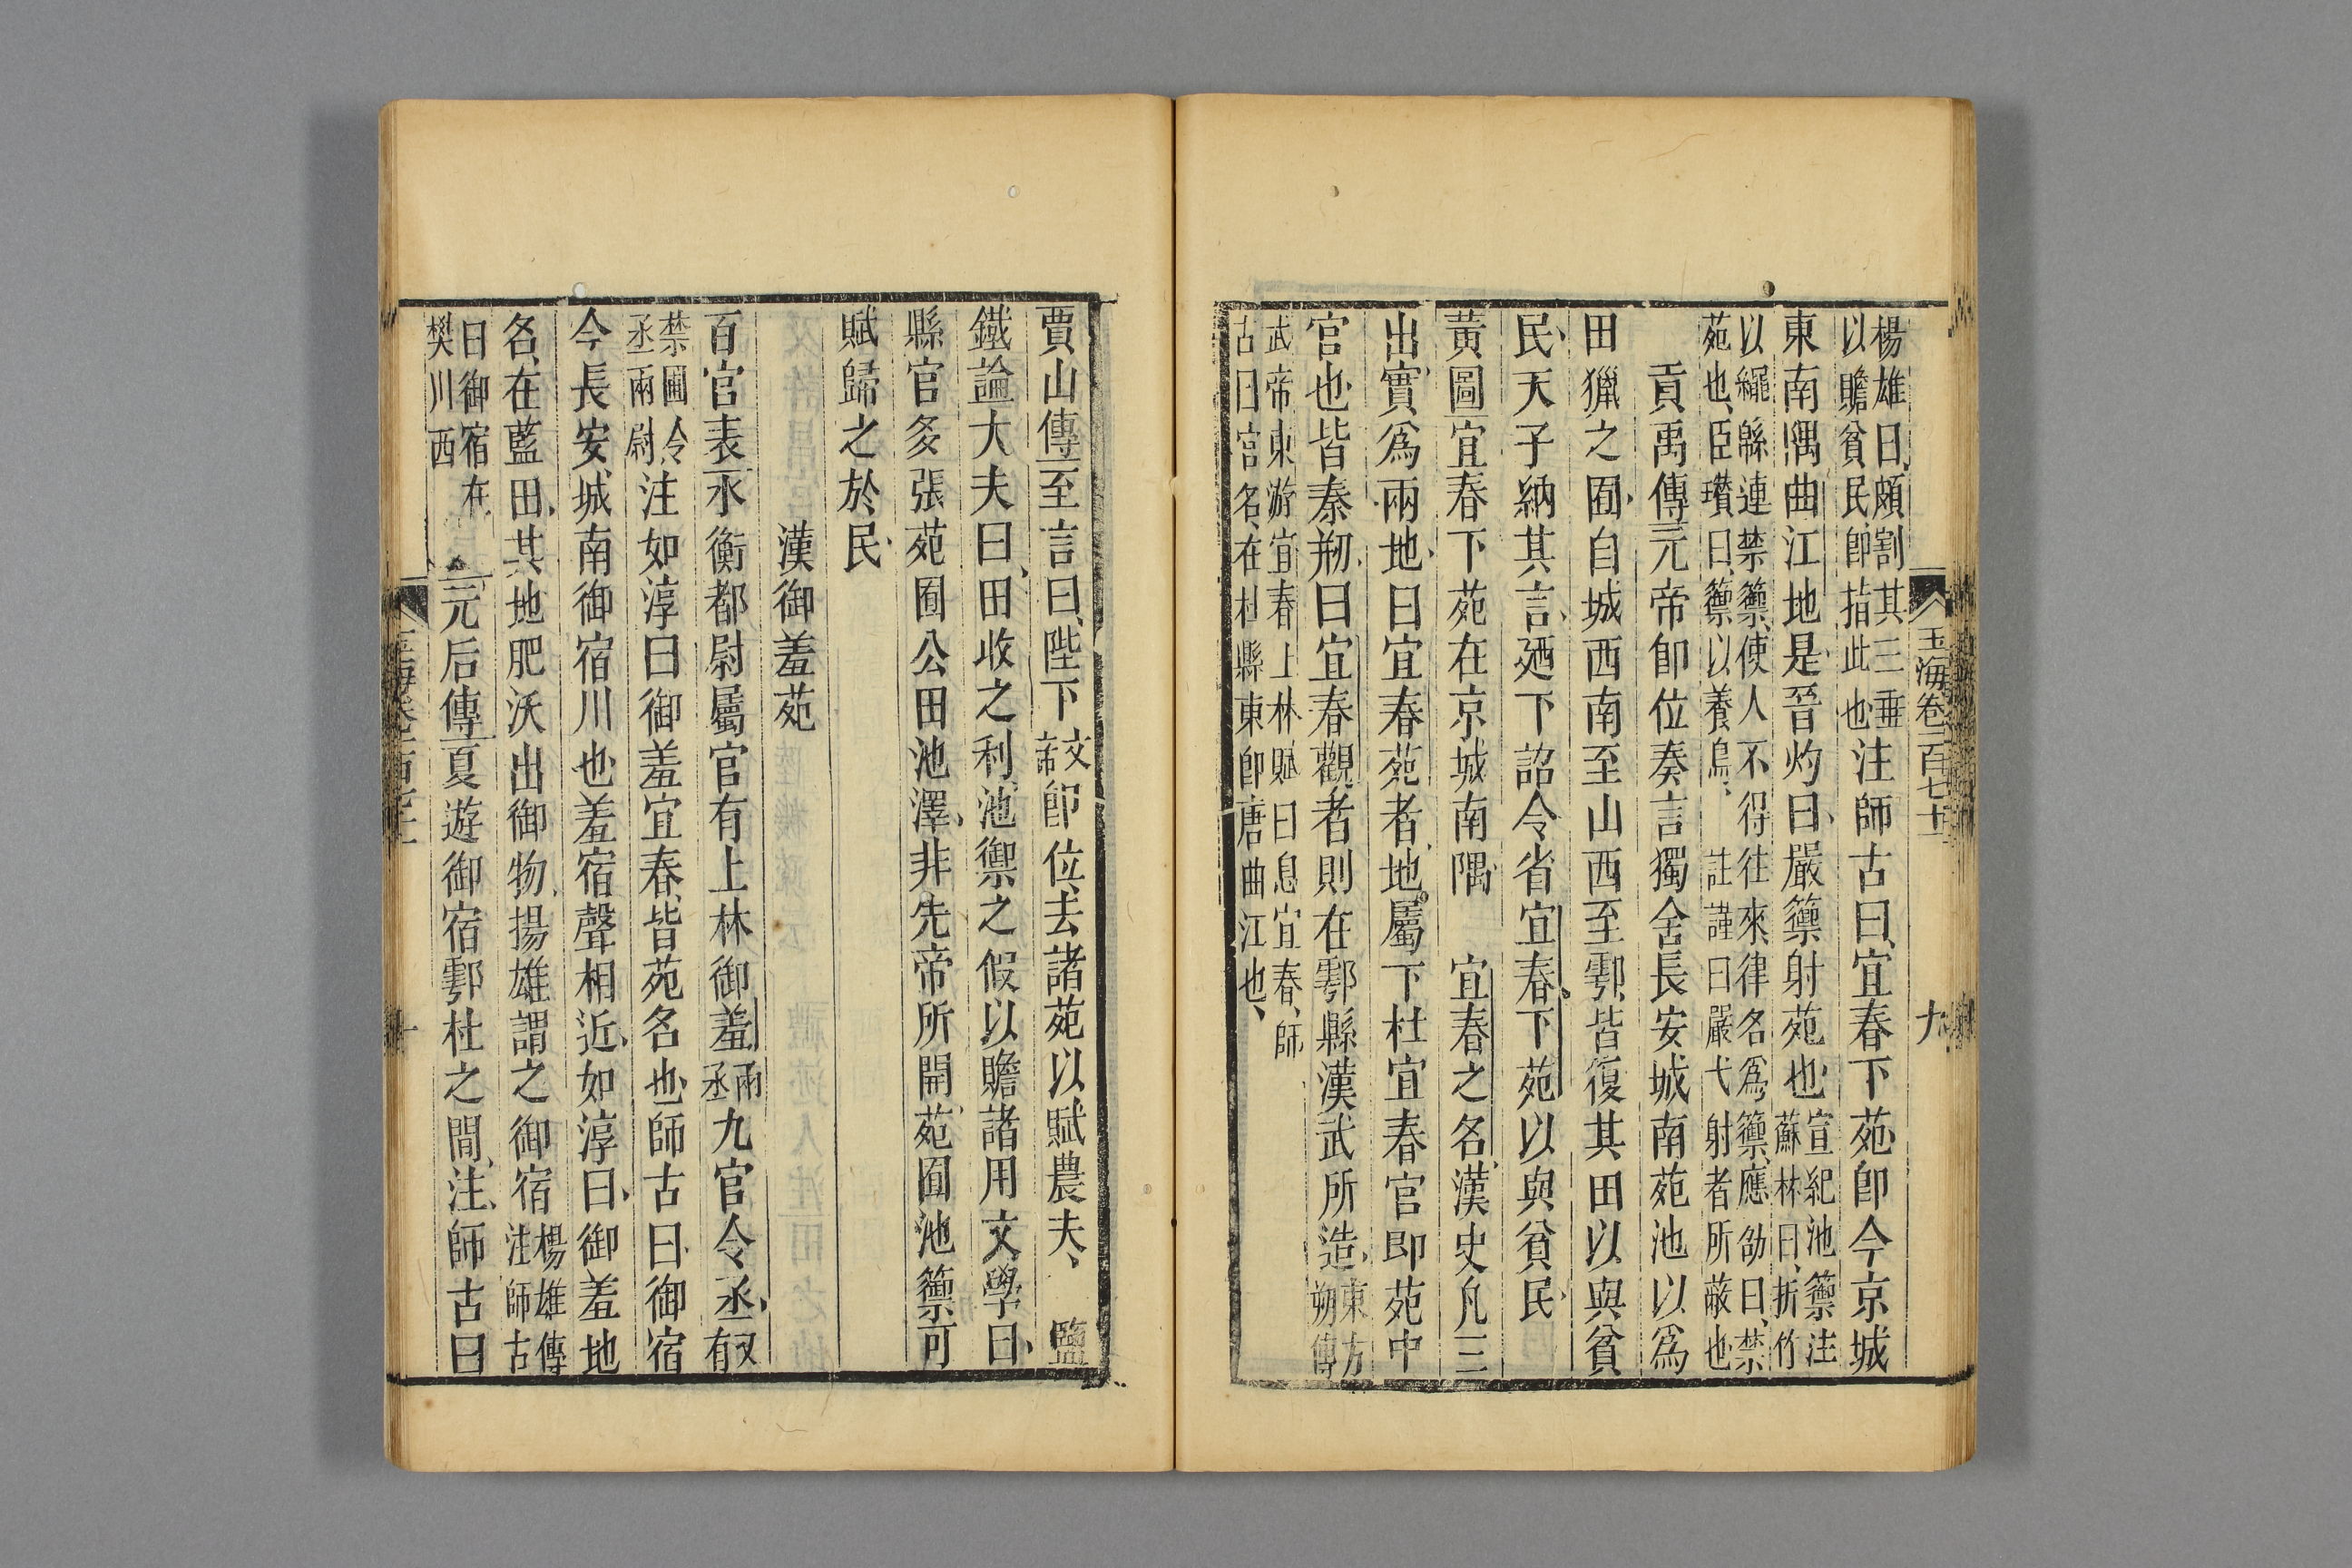 玉海卷一百七十一
九
楊雄曰頗割其三垂
以贍貧民卽指此也
注師古曰宜春下苑卽今京城
東南隅曲江地是晉灼曰嚴籞射苑也
宣紀池籞注
蘇林曰折竹
以繩緜連禁籞使人不得往來律名爲籞應劭曰禁
苑也臣瓚曰籞以養鳥
註謹曰嚴弋射者所蔽也
貢禹傳元帝卽位奏言獨舍長安城南苑池以爲
田獵之囿自城西南至山西至鄠皆復其田以與貧
民天子納其言廼下詔令省宜春下苑以與貧民
黃圖宜春下苑在京城南隅 宜春之名漢史凡三
出實爲兩地曰宜春苑者地屬下杜宜春官即苑中
官也皆秦剏曰宜春觀者則在鄠縣漢武所造
東方
朔傳
武帝東游宜春上林賦曰息宜春師
古曰宮名在杜縣東卽唐曲江也
賈山傳至言曰陛下
文
帝
卽位去諸苑以賦農夫 鹽
鐵論大夫曰田收之利池禦之假以贍諸用文學曰
縣官多張苑囿公田池澤非先帝所開苑囿池籞可
賦歸之於民
漢御羞苑
百官表水衡都尉屬官有上林御羞
兩
丞
九官令丞
又
有
禁圃令
丞兩尉
注如淳曰御羞宜春皆苑名也師古曰御宿
今長安城南御宿川也羞宿聲相近如淳曰御羞地
名在藍田其地肥沃出御物揚雄謂之御宿
楊雄傳
注師古
曰御宿在
樊川西
元后傳夏遊御宿鄠杜之間注師古曰
十